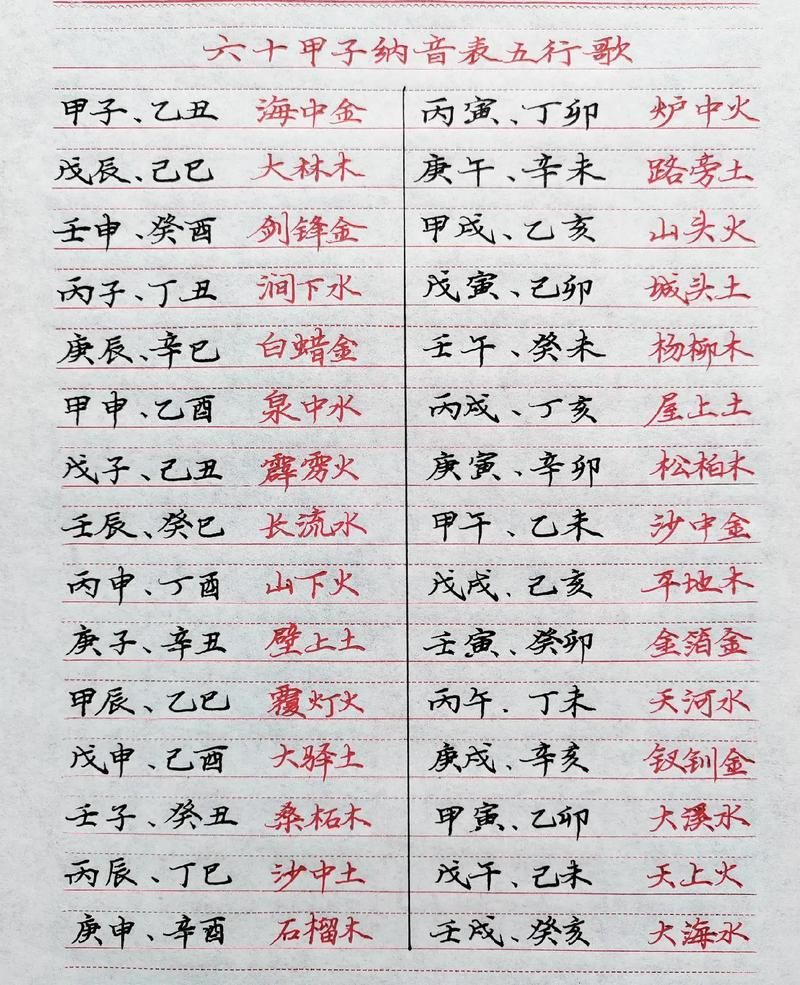 六十甲子纳音表五行歌
甲子、乙丑 海中金 丙寅、丁卯 炉中火
戊辰、己巳 大林木 庚午、辛未 路旁土
壬申、癸酉 剑锋金 甲戌、乙亥 山头火
丙子、丁丑 涧下水 戊寅、己卯 城头土
庚辰、辛巳 白蜡金 壬午、癸未 杨柳木
甲申、乙酉 泉中水 丙戌、丁亥 屋上土
戊子、己丑 霹雳火 庚寅、辛卯 松柏木
壬辰、癸巳 长流水 甲午、乙未 沙中金
丙申、丁酉 山下火 戊戌、己亥 平地木
庚子、辛丑 壁上土 壬寅、癸卯 金箔金
甲辰、乙巳 覆灯火 丙午、丁未 天河水
戊申、己酉 大驿土 庚戌、辛亥 钗钏金
壬子、癸丑 桑柘木 甲寅、乙卯 大溪水
丙辰、丁巳 沙中土 戊午、己未 天上火
庚申、辛酉 石榴木 壬戌、癸亥 大海水